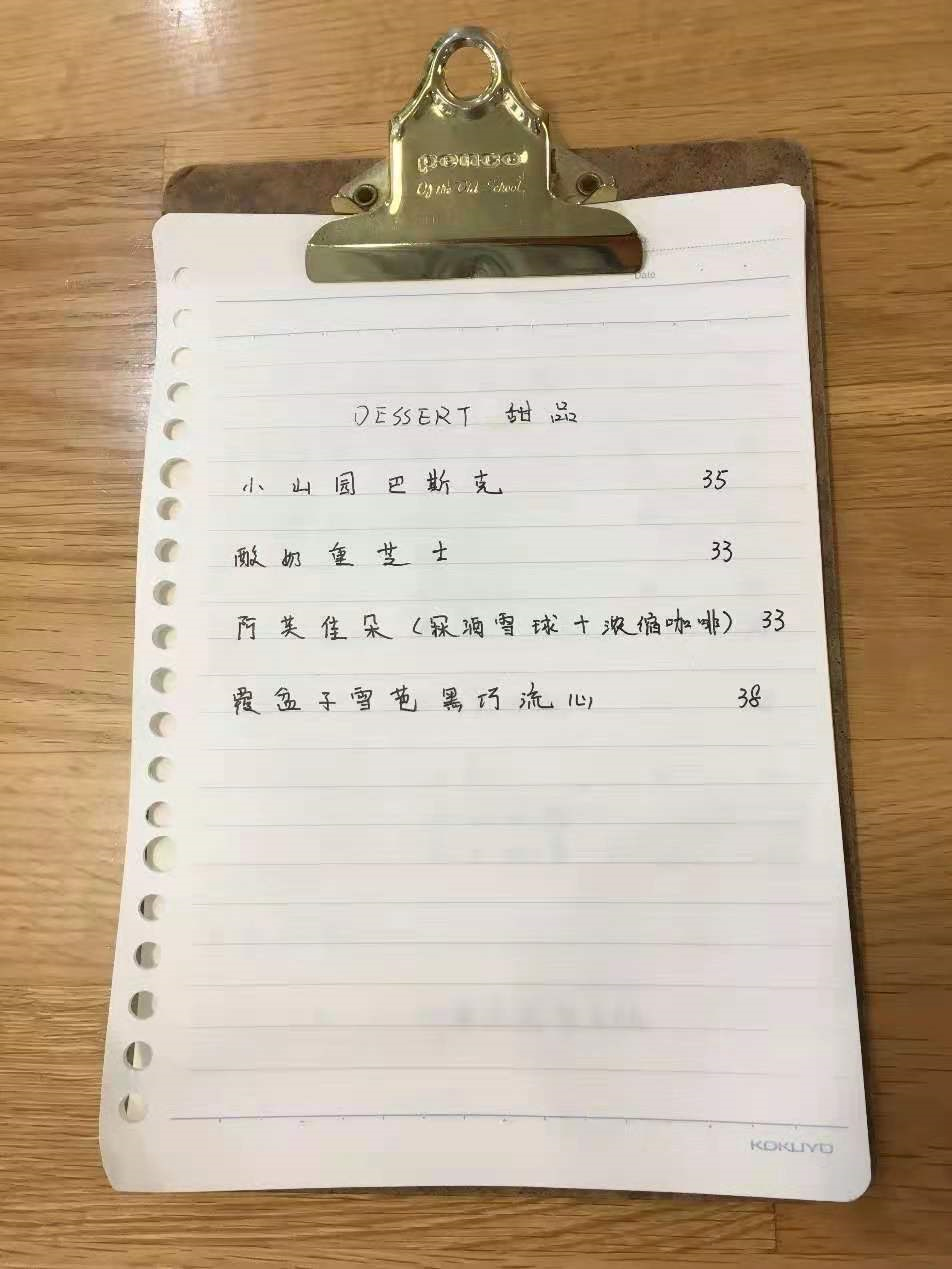 penco
Of the Old School,
Date
DESSERT 甜品
小山园巴斯克 35
酸奶重芝士 33
阿芙佳朵(冧酒雪球+浓缩咖啡) 33
覆盆子雪芭黑巧流心 38
KOKUYO